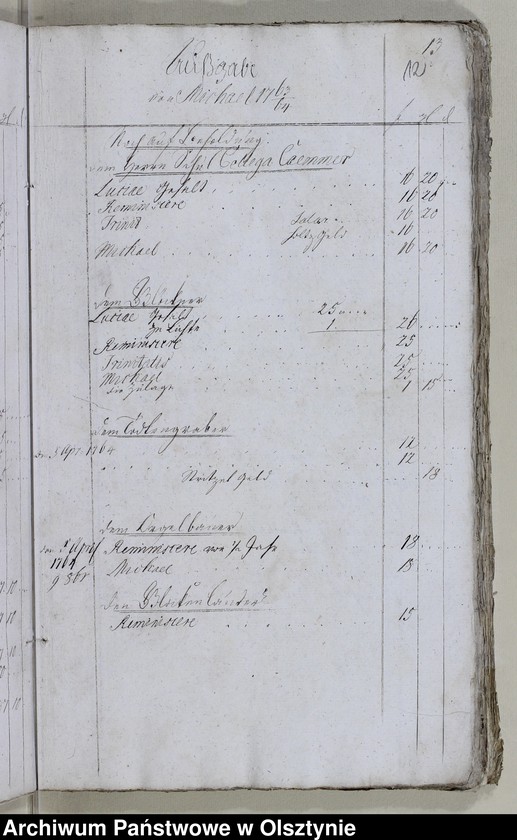 13
12
Außgabe
von Michael 1763/64
f gl d
Noch auf Besoldung
dem Herrn Schul Collega Caemmer
Luciae Gehalt 16 20
Reminiscere 16 20
Trinit Salar 16 20
Holtz Geld 16
Michael 16 20
dem Glöckner
Luciae Gehalt 25
zu Lichte 1 26
Reminiscere 25
Trinitatis 25
Michael 25
die Zulage 1 15
dem Todtengraber
den 5 Apr. 1764 12
12
Geld 18
dem
den 5 April 1764 Reminiscere von ½ Jahr 18
9 8br Michael 18
den Glocken Läuter
Reminiscere 15
Archiwum Państwowe w Olsztynie